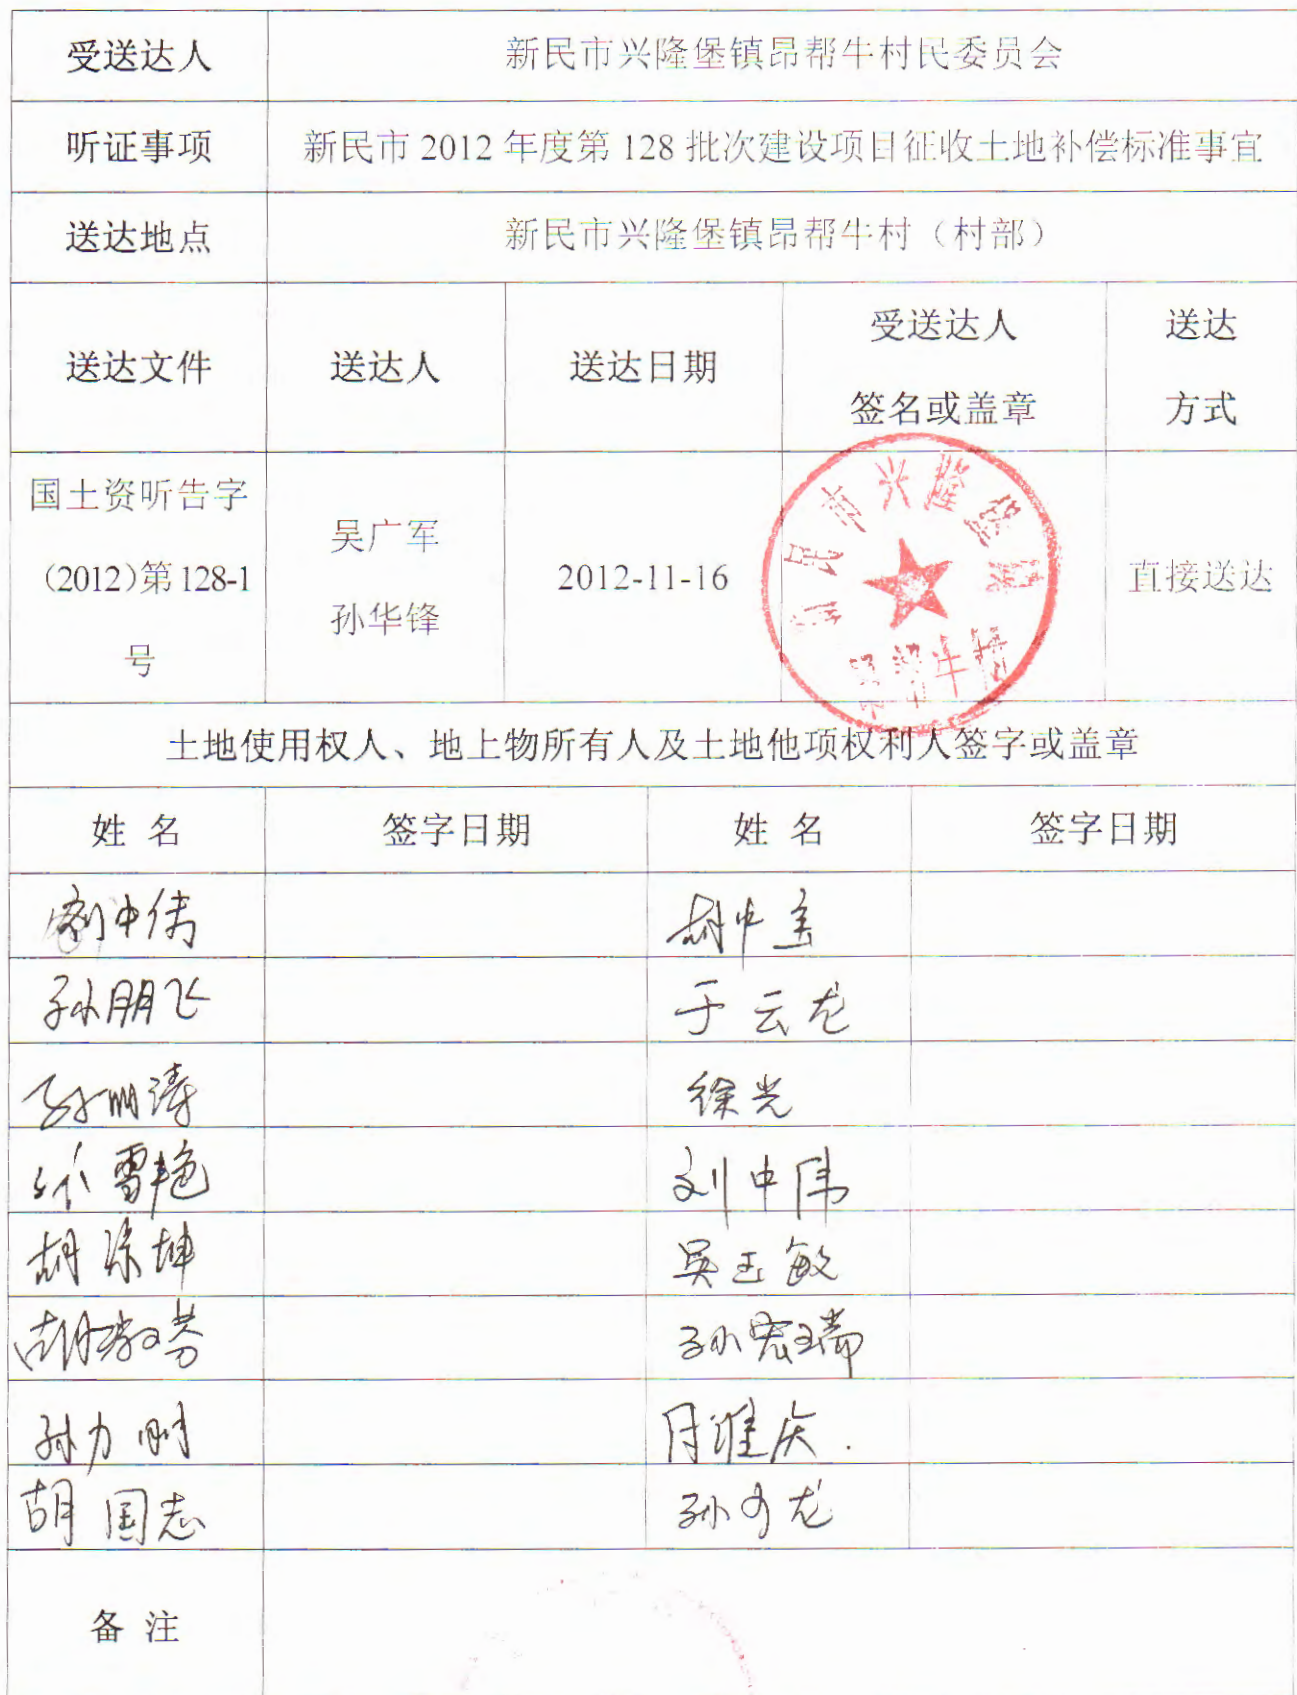 受送达人 新民市兴隆堡镇昂帮牛村民委员会
听证事项 新民市 2012 年度第 128 批次建设项目征收土地补偿标准事宜
送达地点 新民市兴隆堡镇昂帮牛村（村部）
送达文件 送达人 送达日期 受送达人 签名或盖章 送达 方式
国土资听告字
(2012)第 128-1
号
吴广军
孙华锋
2012-11-16
新民市兴隆堡镇
昂帮牛村
直接送达
土地使用权人、地上物所有人及土地他项权利人签字或盖章
姓 名 签字日期 姓 名 签字日期
孙朋飞 于云龙
徐光
雪艳 刘中伟
胡 坤 吴玉敏
胡 芬 孙宏瑞
孙力刚
胡国志 孙 龙
备 注